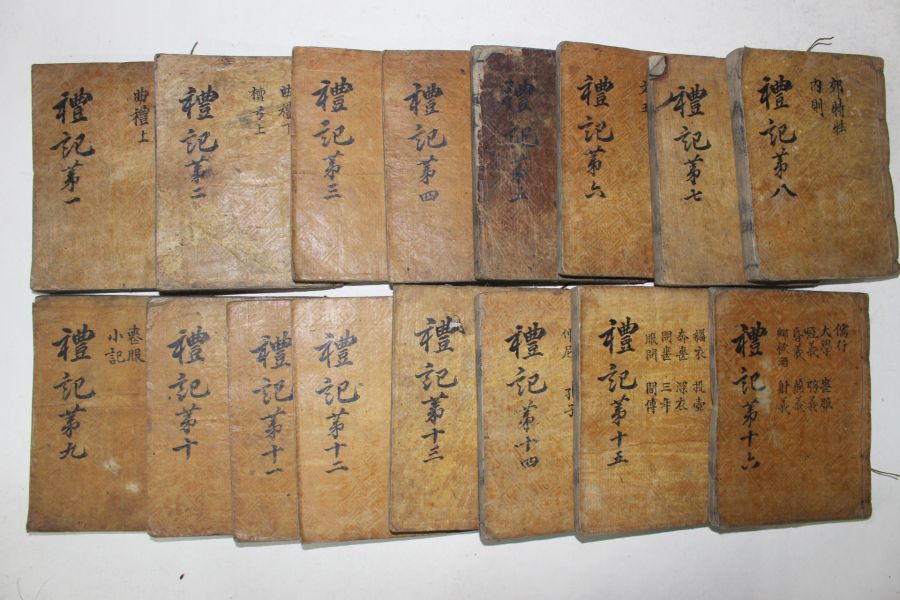 曲禮上
禮記苐一
曲禮下
檀弓上
禮記苐二
禮記苐三
禮記苐四
禮記苐五
禮記苐六
禮記苐七
郊特牲
內則
禮記苐八
喪服
小記
禮記苐九
禮記苐十
禮記苐十一
禮記苐十二
禮記苐十三
仲尼 孔子
禮記苐十四
緇衣 投壺
奔喪 深衣
問喪 三年
服問 間傳
禮記苐十五
儒行
大學 喪服
冠義 聘義
昏義 燕義
鄕飮酒 射義
禮記苐十六